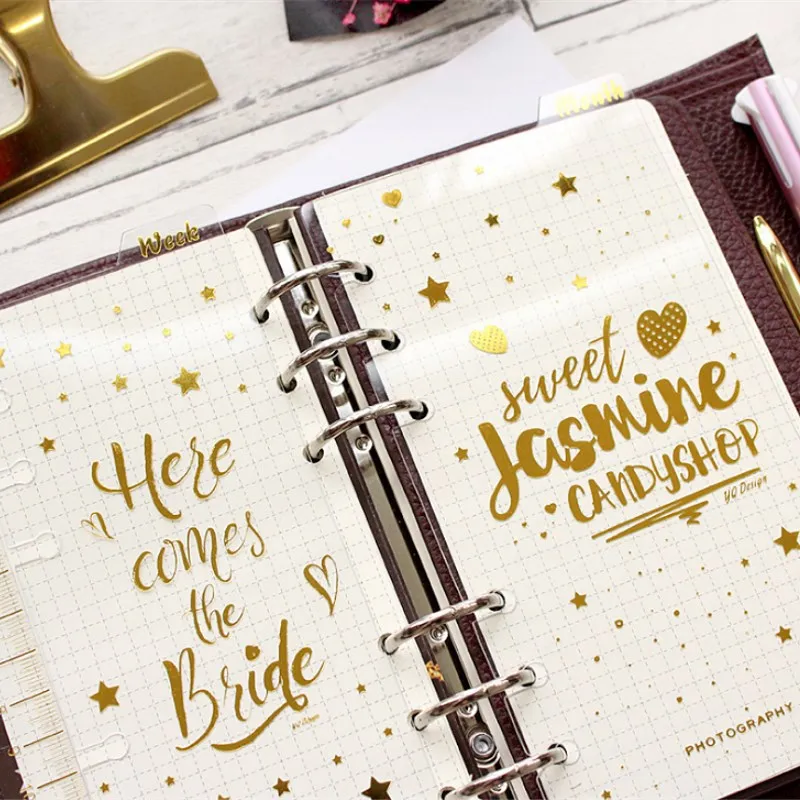 Week
Here
comes
the
Bride
YQ Design
sweet
Jasmine
CANDYSHOP
YQ Design
PHOTOGRAPHY